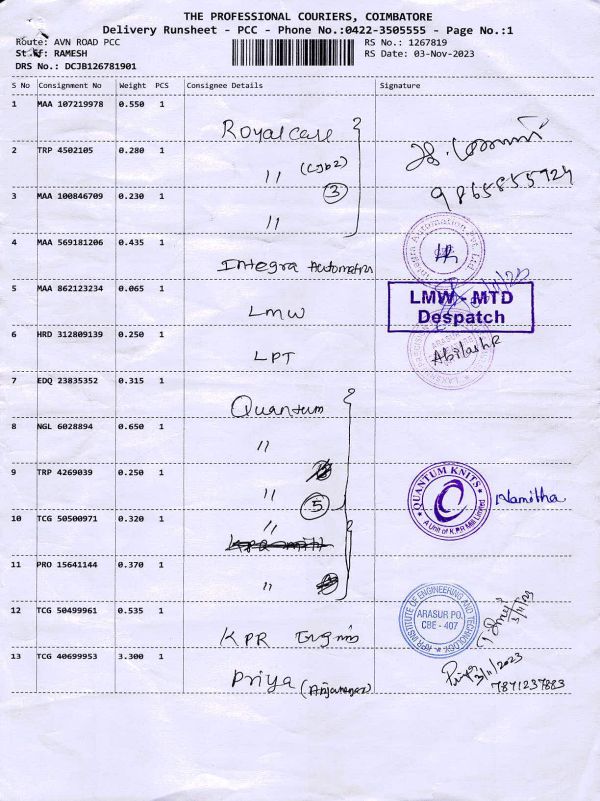 THE PROFESSIONAL COURIERS, COIMBATORE
Delivery Runsheet - PCC - Phone No.:0422-3505555 - Page No.:1
Route: AVN ROAD PCC
RS No.: 1267819
Staff: RAMESH
RS Date: 03-Nov-2023
DRS No.: DCJB126781901
S No Consignment No Weight PCS Consignee Details Signature
1 MAA 107219978 0.550 1 Royalcare
2 TRP 4502105 0.280 1 " (CJB2)
9865855924
3 MAA 100846709 0.230 1 " 3
4 MAA 569181206 0.435 1 Integra Automation
Integra Automation Pvt. Ltd
5 MAA 862123234 0.065 1 LMW
LMW - MTD
Despatch
6 HRD 312809139 0.250 1 LPT
Abilash R
7 EDQ 23835352 0.315 1 Quantum
8 NGL 6028894 0.650 1 "
9 TRP 4269039 0.250 1 " 5
QUANTUM KNITS
A Unit of K.P.R Mill Limited
Namitha
10 TCG 50500971 0.320 1 "
11 PRO 15641144 0.370 1 "
12 TCG 50499961 0.535 1 KPR Engg
KPR INSTITUTE OF ENGINEERING AND TECHNOLOGY
ARASUR PO.
CBE - 407
3/11/23
13 TCG 40699953 3.300 1 Priya
Priya
3/11/2023
7871237883